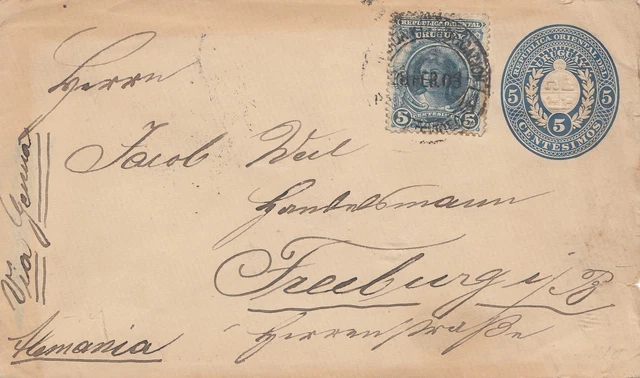 REPUBLICA ORIENTAL
URUGUAY
5 CENTESIMOS 5
FEB 03
REPUBLICA ORIENTAL DEL
URUGUAY
5 5
5
CENTESIMOS
Herrn
Jacob Weil
Handelsmann
Freiburg i/B
Herrenstraße
Via Genua
Alemania